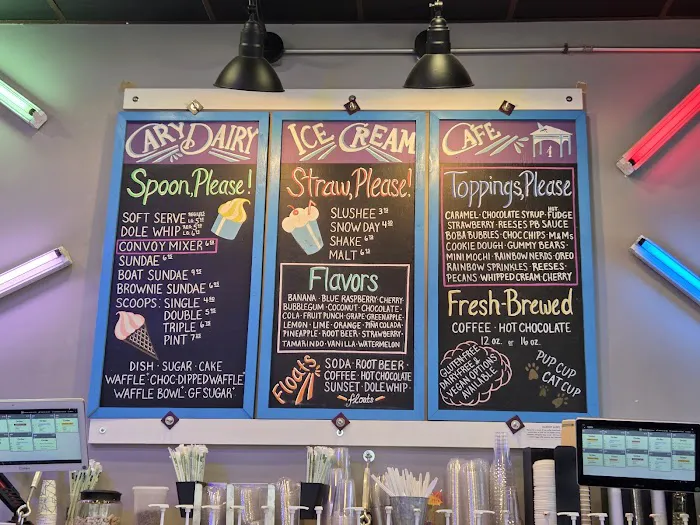 CARY DAIRY
Spoon, Please!
SOFT SERVE
DOLE WHIP
CONVOY MIXER
SUNDAE
BOAT SUNDAE
BROWNIE SUNDAE
SCOOPS: SINGLE
DOUBLE
TRIPLE
PINT
DISH · SUGAR · CAKE
WAFFLE · CHOC-DIPPED WAFFLE
WAFFLE BOWL · GF SUGAR
ICE CREAM
Straw, Please!
SLUSHEE
SNOW DAY
SHAKE
MALT
Flavors
BANANA · BLUE RASPBERRY · CHERRY
BUBBLEGUM · COCONUT · CHOCOLATE
COLA · FRUIT PUNCH · GRAPE · GREEN APPLE
LEMON · LIME · ORANGE · PIÑA COLADA
PINEAPPLE · ROOT BEER · STRAWBERRY
TAMARINDO · VANILLA · WATERMELON
Floats
SODA · ROOT BEER
COFFEE · HOT CHOCOLATE
SUNSET · DOLE WHIP
floats
CAFE
4
Toppings, Please
CARAMEL · CHOCOLATE SYRUP · HOT FUDGE
STRAWBERRY · REESES PB SAUCE
BOBA BUBBLES · CHOC CHIPS · M&Ms
COOKIE DOUGH · GUMMY BEARS ·
MINI MOCHI · RAINBOW NERDS · OREO
RAINBOW SPRINKLES · REESES ·
PECANS · WHIPPED CREAM · CHERRY
Fresh-Brewed
COFFEE · HOT CHOCOLATE
12 oz. or 16 oz.
GLUTEN-FREE
DAIRY-FREE &
VEGAN OPTIONS
AVAILABLE
PUP CUP
CAT CUP